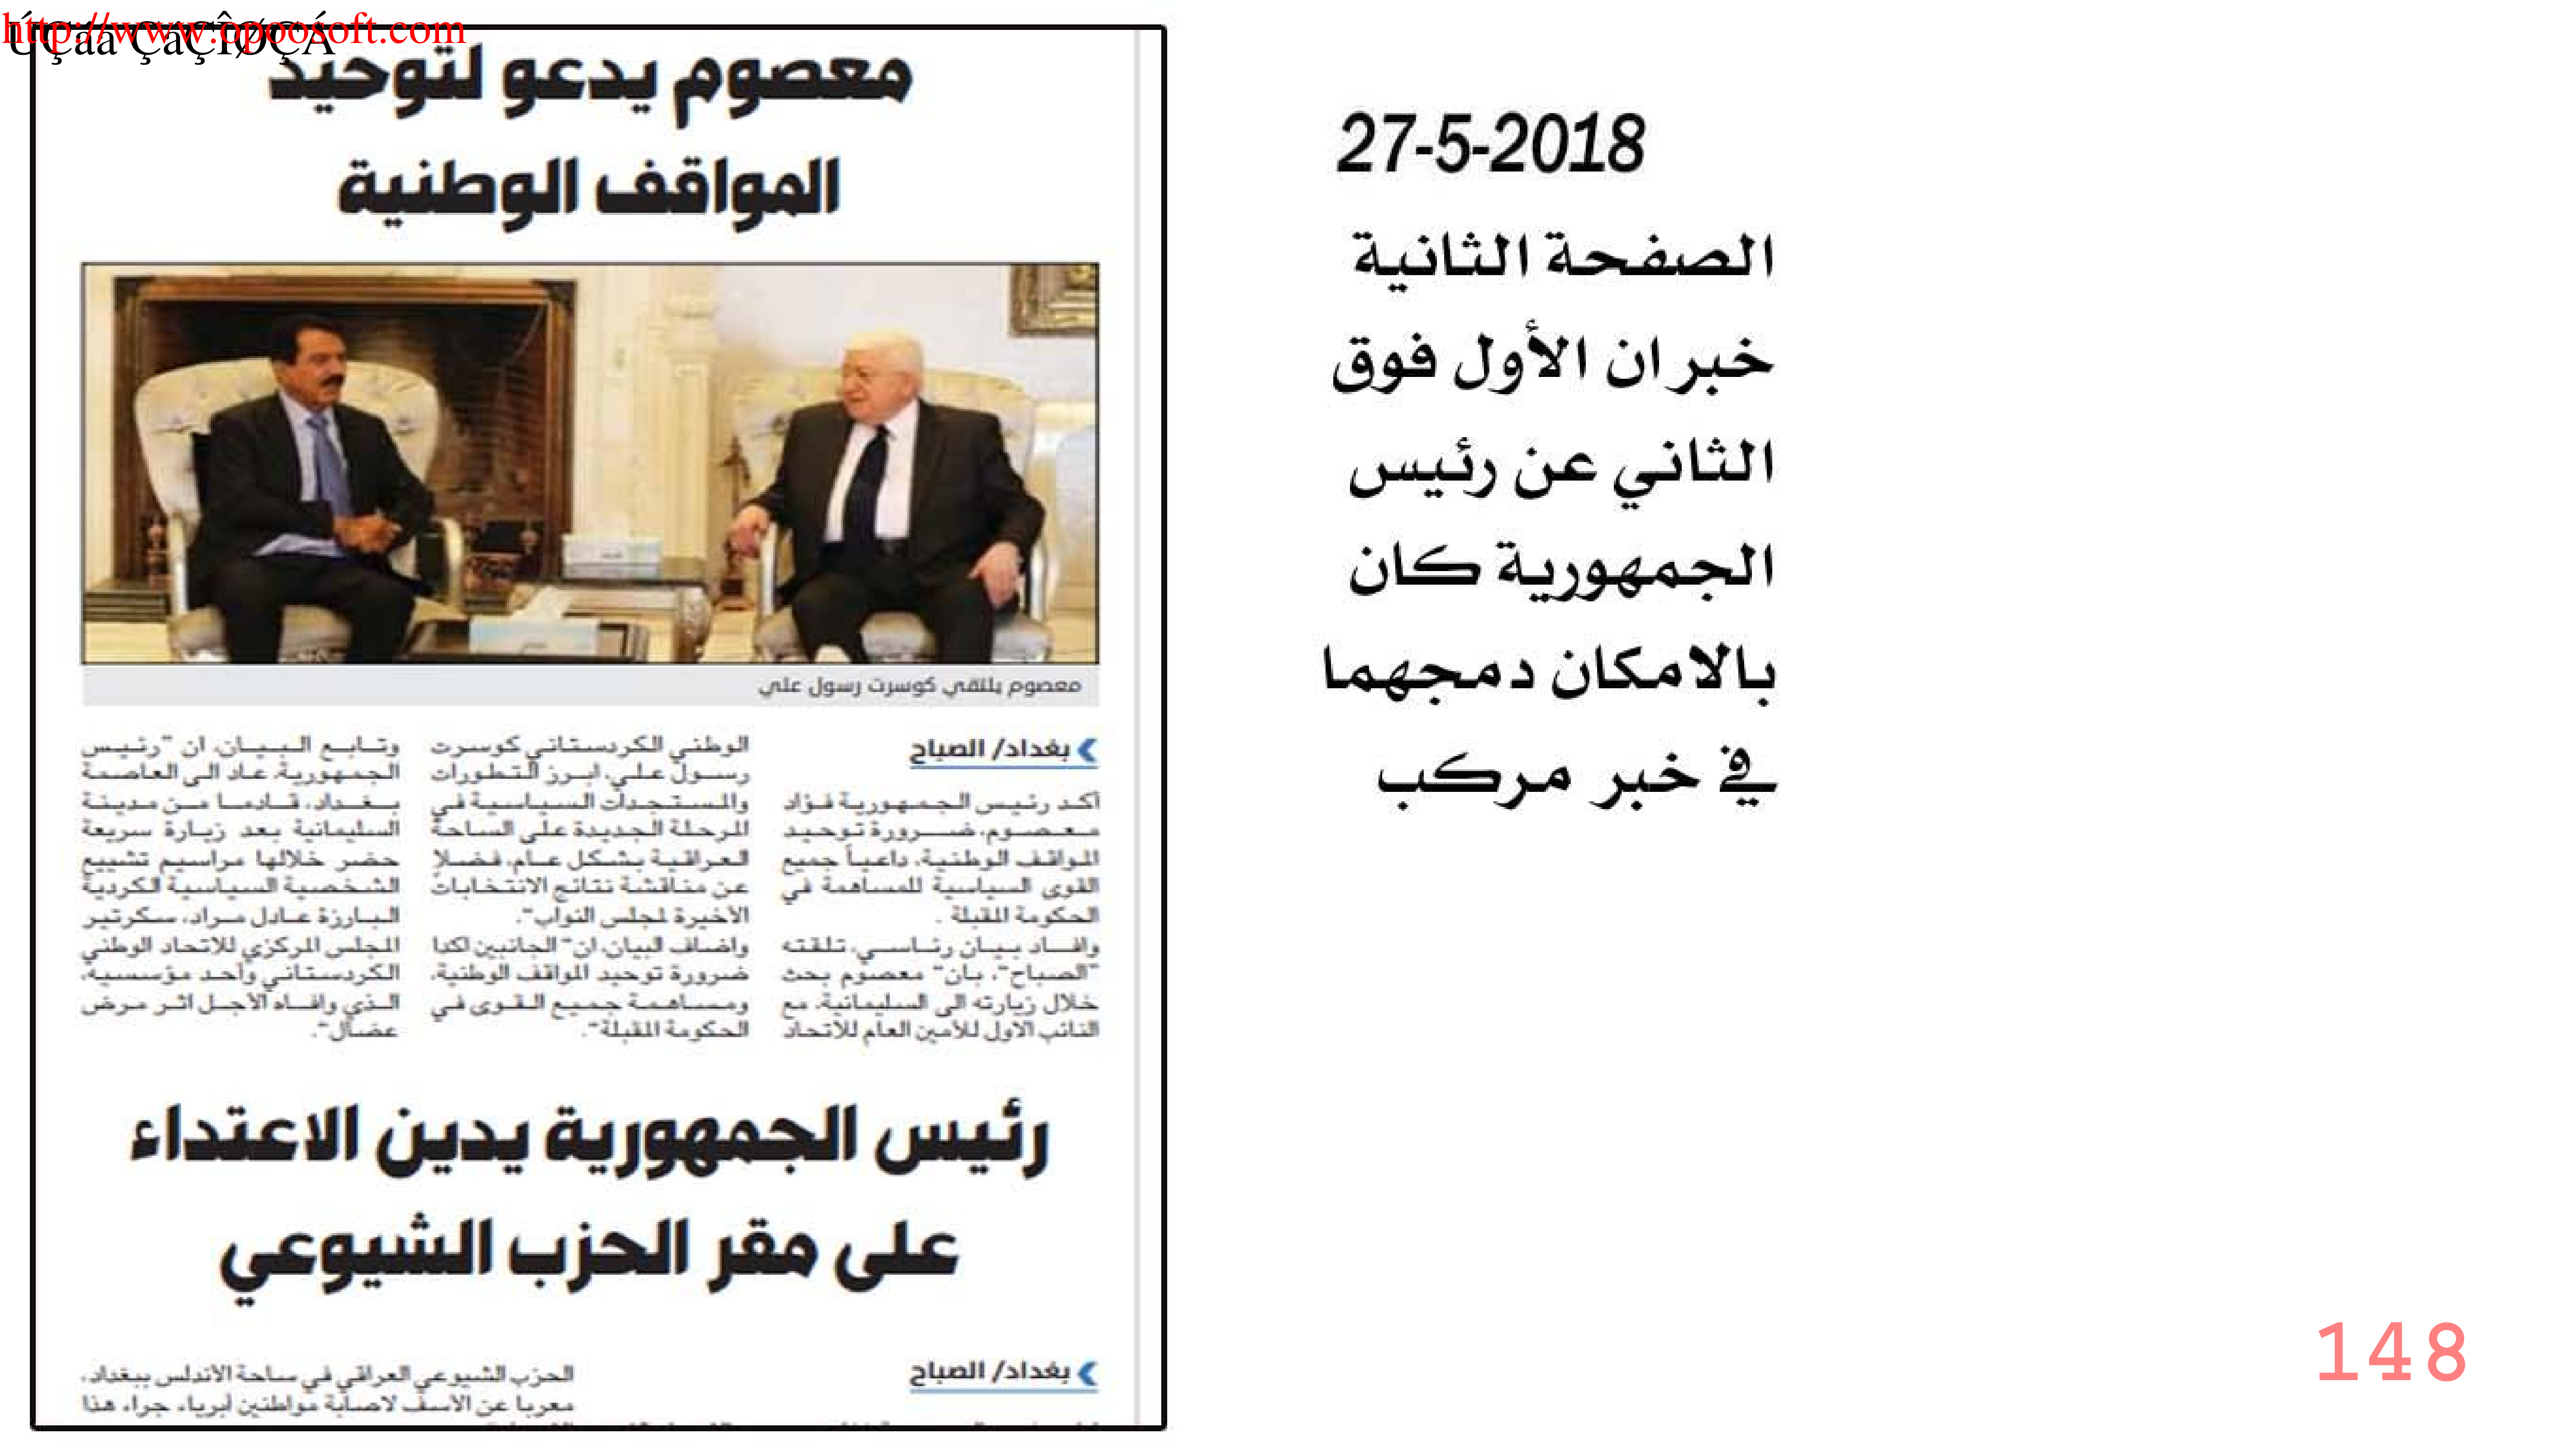 http://www.opoosoft.com
معصوم يدعو لتوحيد
المواقف الوطنية
معصوم يلتقي كوسرت رسول علي
بغداد/ الصباح
أكد رئيس الجمهورية فؤاد
معصوم، ضرورة توحيد
المواقف الوطنية، داعياً جميع
القوى السياسية للمساهمة في
الحكومة المقبلة .
وافاد بيان رئاسي، تلقته
"الصباح"، بان" معصوم بحث
خلال زيارته الى السليمانية، مع
النائب الاول للأمين العام للاتحاد
الوطني الكردستاني كوسرت
رسول علي، ابرز التطورات
والمستجدات السياسية في
المرحلة الجديدة على الساحة
العراقية بشكل عام، فضلاً
عن مناقشة نتائج الانتخابات
الاخيرة لمجلس النواب".
واضاف البيان، ان" الجانبين اكدا
ضرورة توحيد المواقف الوطنية،
ومساهمة جميع القوى في
الحكومة المقبلة".
وتابع البيان، ان "رئيس
الجمهورية، عاد الى العاصمة
بغداد، قادما من مدينة
السليمانية بعد زيارة سريعة
حضر خلالها مراسيم تشييع
الشخصية السياسية الكردية
البارزة عادل مراد، سكرتير
المجلس المركزي للاتحاد الوطني
الكردستاني وأحد مؤسسيه،
الذي وافاه الأجل اثر مرض
عضال".
رئيس الجمهورية يدين الاعتداء
على مقر الحزب الشيوعي
بغداد/ الصباح
الحزب الشيوعي العراقي في ساحة الاندلس ببغداد،
معربا عن الاسف لاصابة مواطنين أبرياء، جراء هذا
27-5-2018
الصفحة الثانية
خبران الأول فوق
الثاني عن رئيس
الجمهورية كان
بالامكان دمجهما
في خبر مركب
148